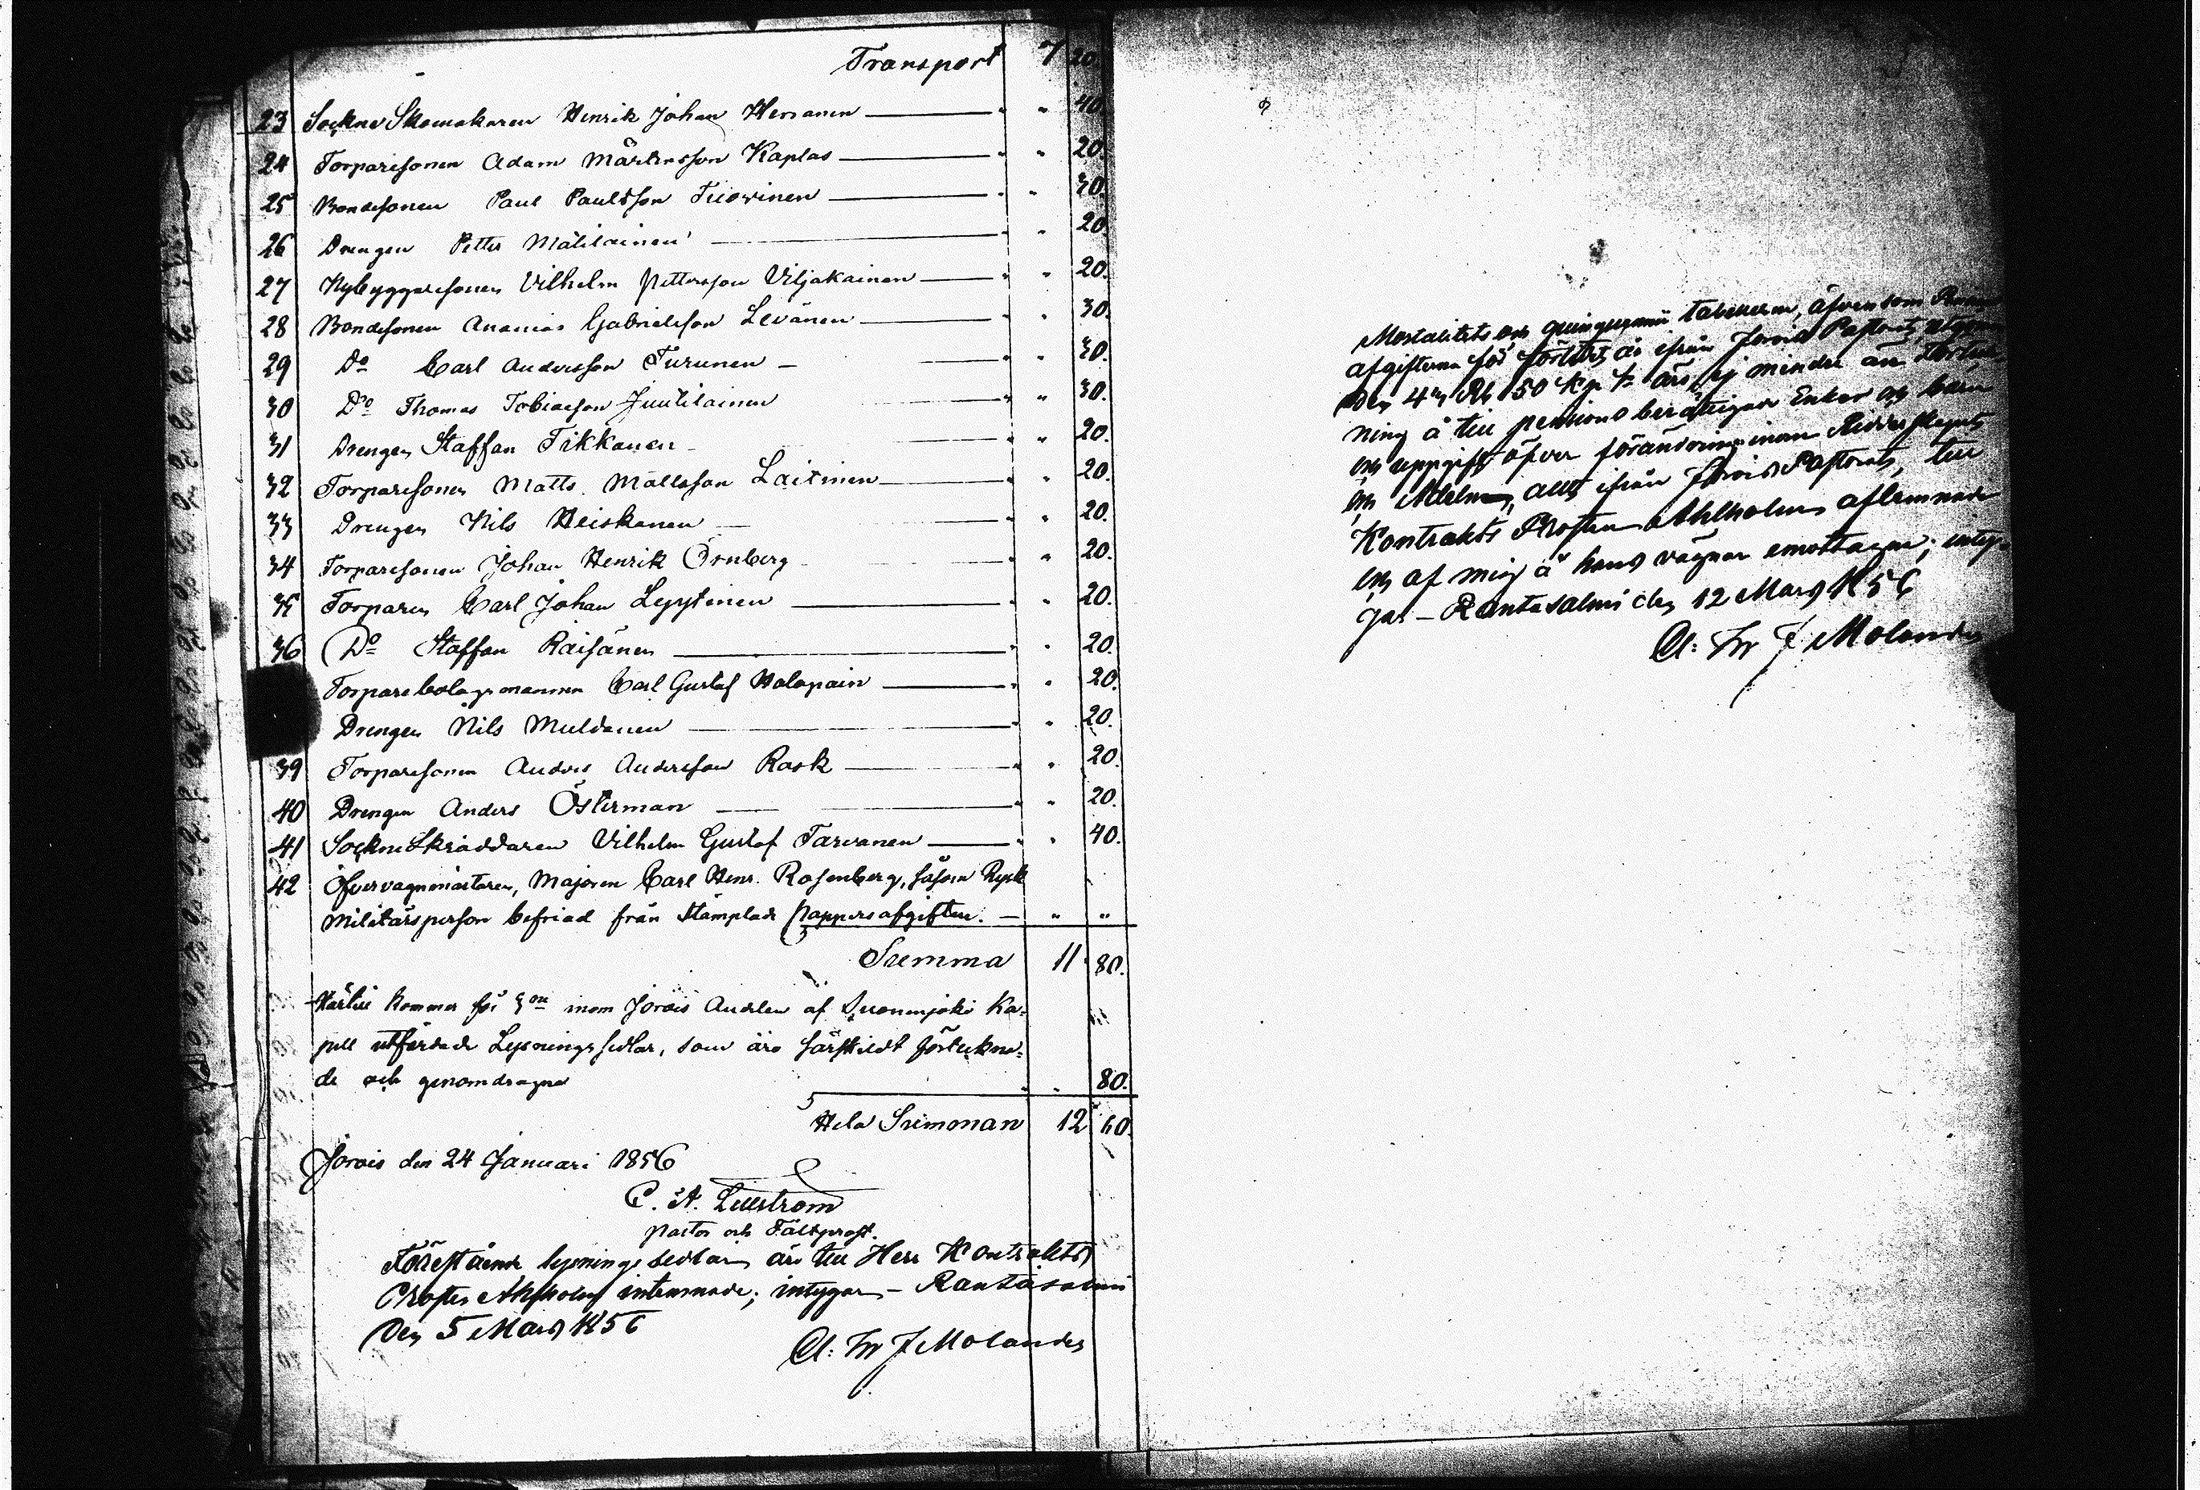 Transport 7 20.
23 Sockne Skomakaren Henrik Johan Hersanen " " 40.
24 Torparesonen Adam Mårtensson Kaplas " " 20.
25 Bondesonen Paul Paulsson Tuovinen " " 30.
26 Drengen Petter Mätiläinen " 20.
27 Nybyggaresonen Vilhelm Pettersson Viljakainen " " 20.
28 Bondesonen Ananias Gabrielsson Levänen " " 30.
29 Do Carl Andersson Turunen " " 30.
30 Do Thomas Tobiasson Juutilainen " " 30.
31 Drengen Staffan Tikkanen " " 20.
32 Torparesonen Matts Mattsson Laitinen " " 20.
33 Drengen Nils Heiskanen " " 20.
34 Torparesonen Johan Henrik Örnberg " " 20.
35 Torparen Carl Johan Lyytinen " " 20.
36 Do Staffan Räisänen " " 20.
Torparebolagsmannen Carl Gustaf Holopain " " 20.
Drengen Nils Muldanen " " 20.
39 Torparesonen Anders Andersson Rask " " 20.
40 Drengen Anders Österman " " 20.
41 SockneSkräddaren Vilhelm Gustaf Tarvanen " " 40.
42 Öfvervagnmästaren, Majoren Carl Henr. Rosenberg, såsom Rysk
Militärsperson befriad från stämplade pappersafgiften. " "
Summa 11 80.
Härtill kommer för inom Jorois Andelen af Suonenjoki Ka-
pell utfärdade Lysningssedlar, som äro särskildt förteckna-
de och genomdragne " " 80.
Hela Summan 12 60.
Jorois den 24 Januari 1856
C. A. Lillström
Pastor och Fältprost.
Förestående lysningssedlar äro till Herr Kontrakts
Prosten Ahlholm inlemnade; intygar – Rantasalmi
den 5 Mars 1856
Cl: Fr J Molander
Mortalitets och quinquennii tabellerna, äfvensom
afgifterna för förlidet år ifrån Jorois Pastorat,
50 kop ej mindre än
ning å till pension berättigade Enkor och barn
och uppgift öfver förändring inom Ridderskapet
och Adeln, allt ifrån Jorois Pastorat, till
Kontrakts Prosten Ahlholm aflemnade
och af mig å hans vägnar emottagne; inty-
gar – Rantasalmi den 12 Mars 1856
Cl: Fr J Molander